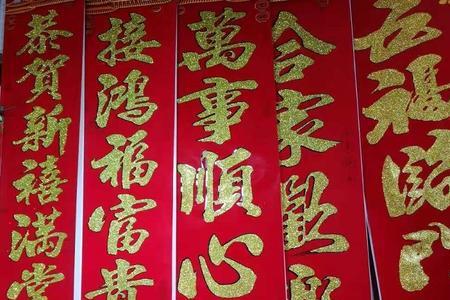 五福臨門
合家歡樂
萬事順心
接鴻福富貴
恭賀新禧滿堂